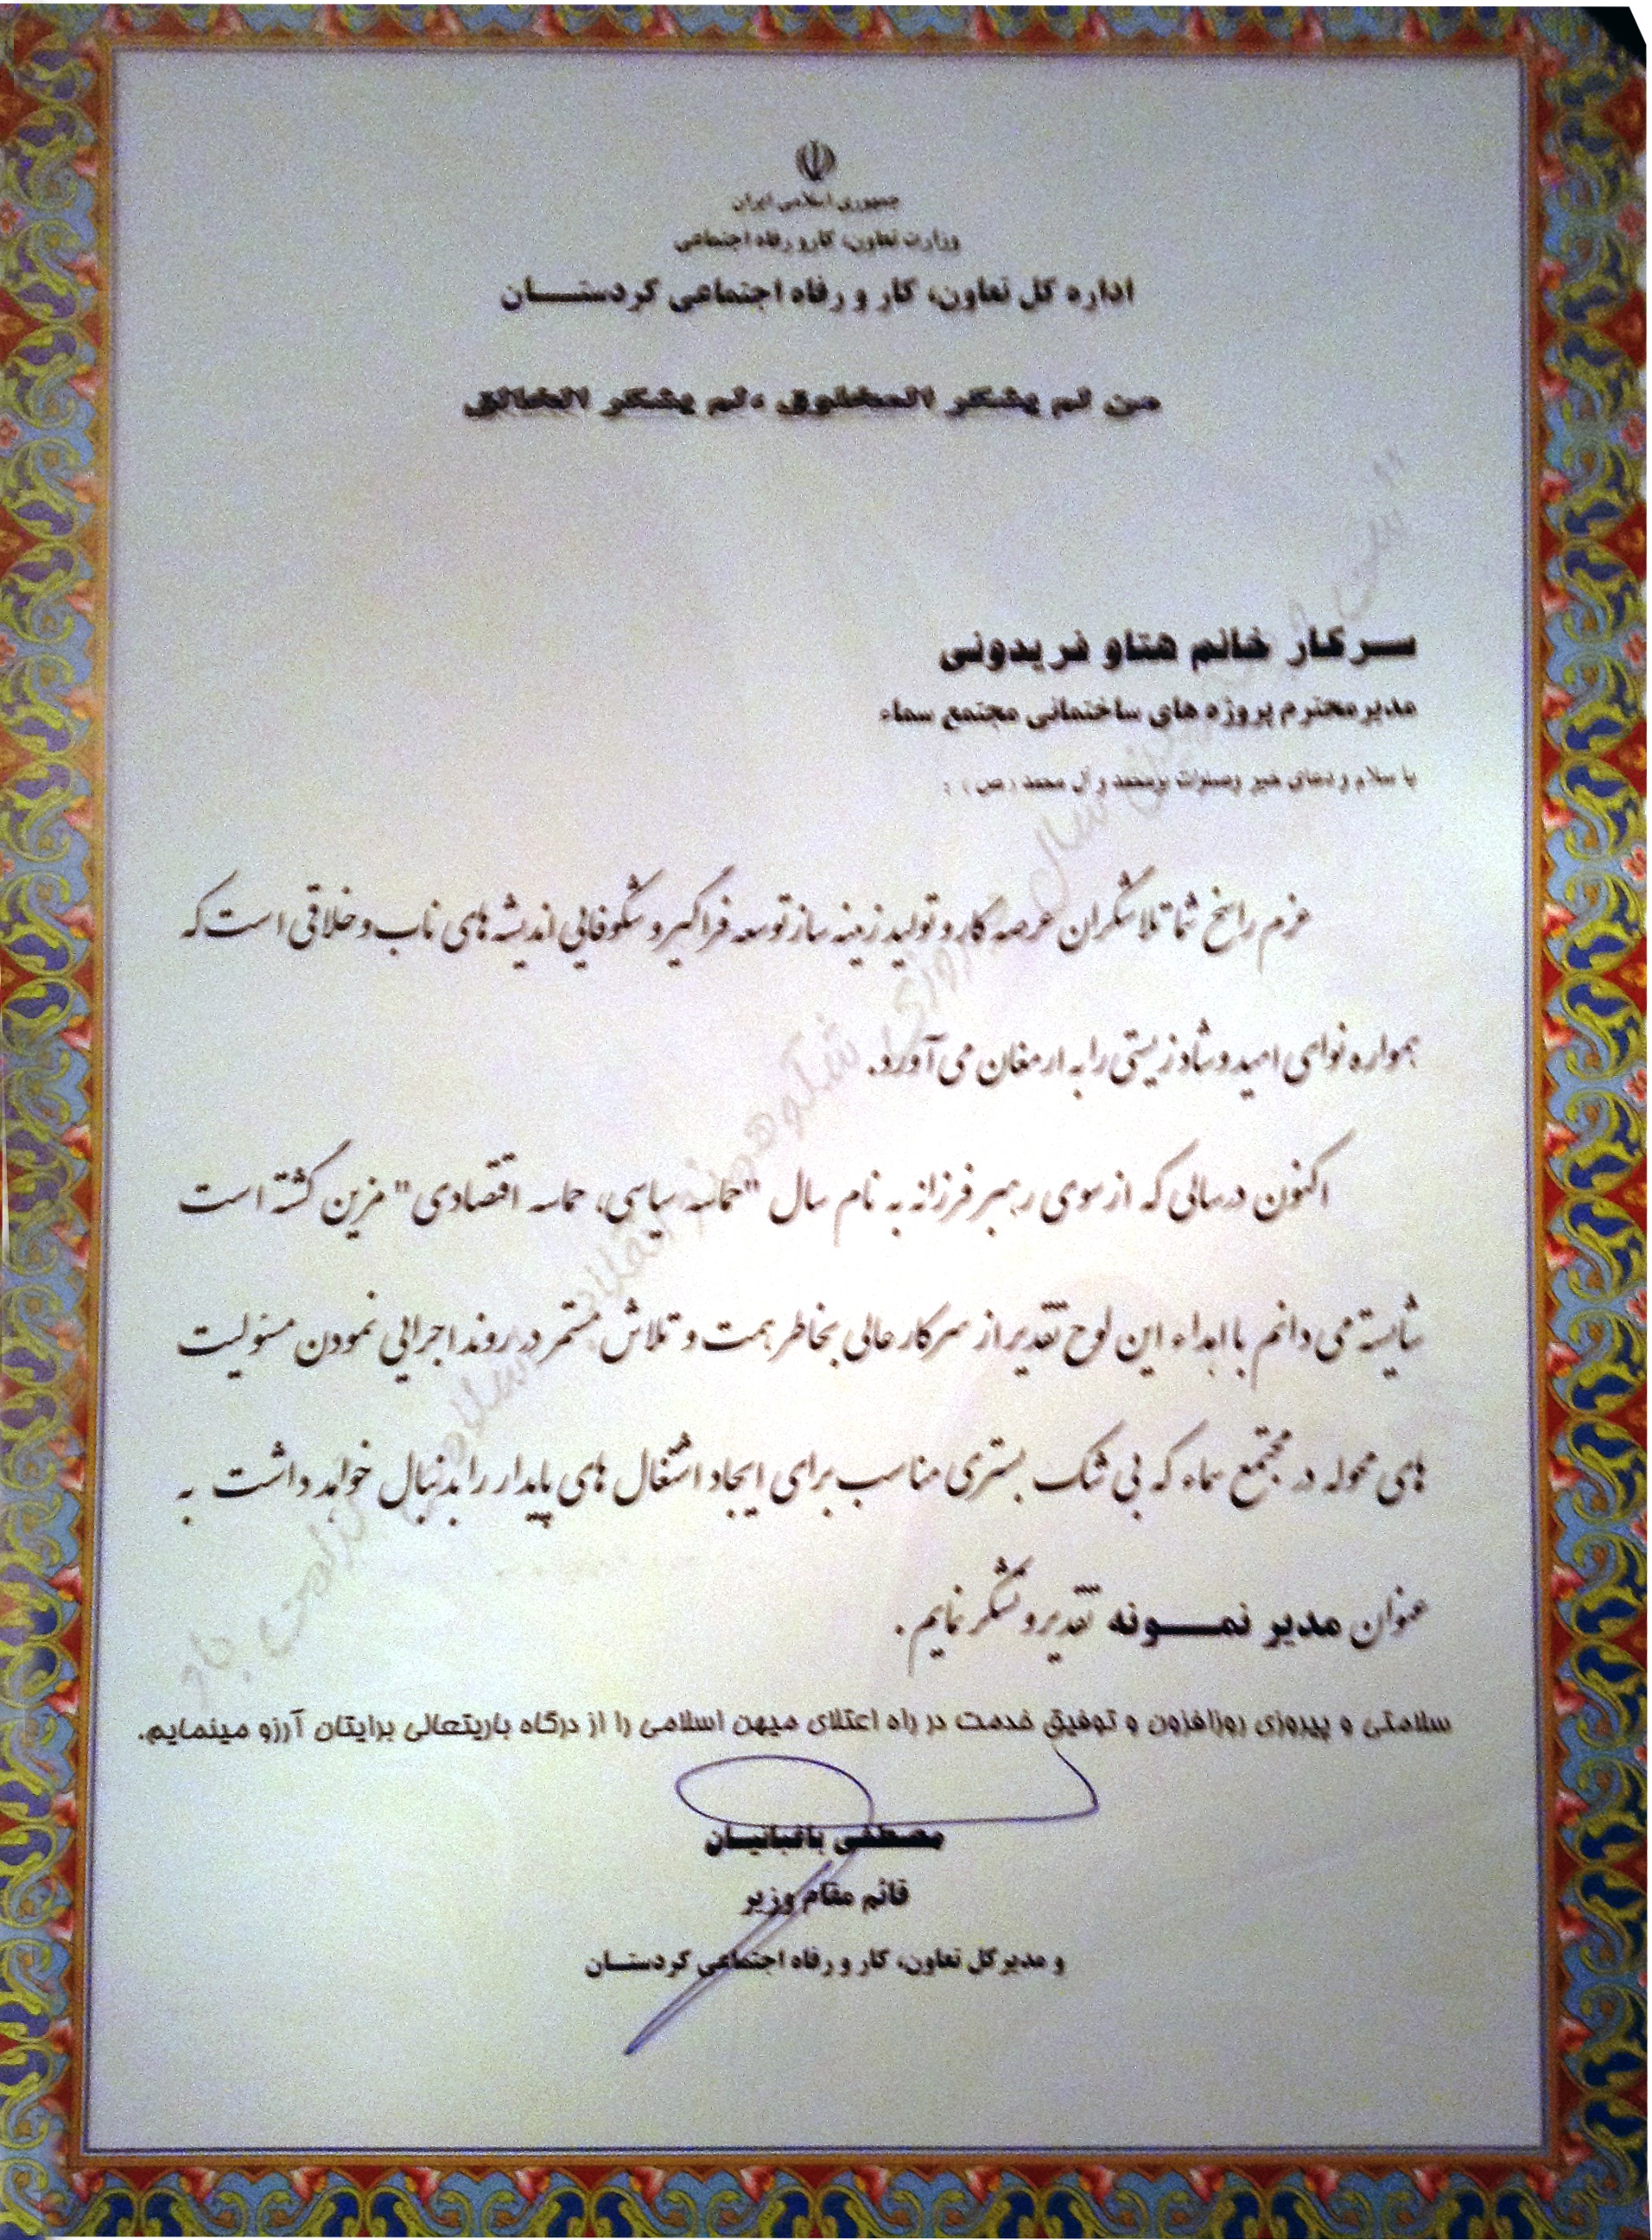 جمهوری اسلامی ایران
وزارت تعاون، کار و رفاه اجتماعی
اداره کل تعاون، کار و رفاه اجتماعی کردستـــان
من لم یشکر المخلوق ،لم یشکر الخالق
سرکار خانم هتاو فریدونی
مدیر محترم پروژه های ساختمانی مجتمع سماء
با سلام و دعای خیر وصلوات برمحمد و آل محمد (ص) :
عزم راسخ شما تلاشگران عرصه کار و تولید زمینه ساز توسعه فراگیر و شکوفایی اندیشه های ناب و خلاقی است که
همواره نوای امید و شاد زیستی را به ارمغان می آورد.
اکنون در سالی که از سوی رهبر فرزانه به نام سال "حماسه سیاسی، حماسه اقتصادی" مزین گشته است
شایسته می دانم با اهداء این لوح تقدیر از سرکار عالی بخاطر همت و تلاش مستمر در روند اجرایی نمودن مسئولیت
های محوله در مجتمع سماء که بی شک بستری مناسب برای ایجاد اشتغال های پایدار را بدنبال خواهد داشت به
عنوان مدیر نمـــونه تقدیر و تشکر نمایم.
سلامتی و پیروزی روزافزون و توفیق خدمت در راه اعتلای میهن اسلامی را از درگاه باریتعالی برایتان آرزو مینمایم.
مصطفی باغبانیان
قائم مقام وزیر
و مدیرکل تعاون، کار و رفاه اجتماعی کردستـــان